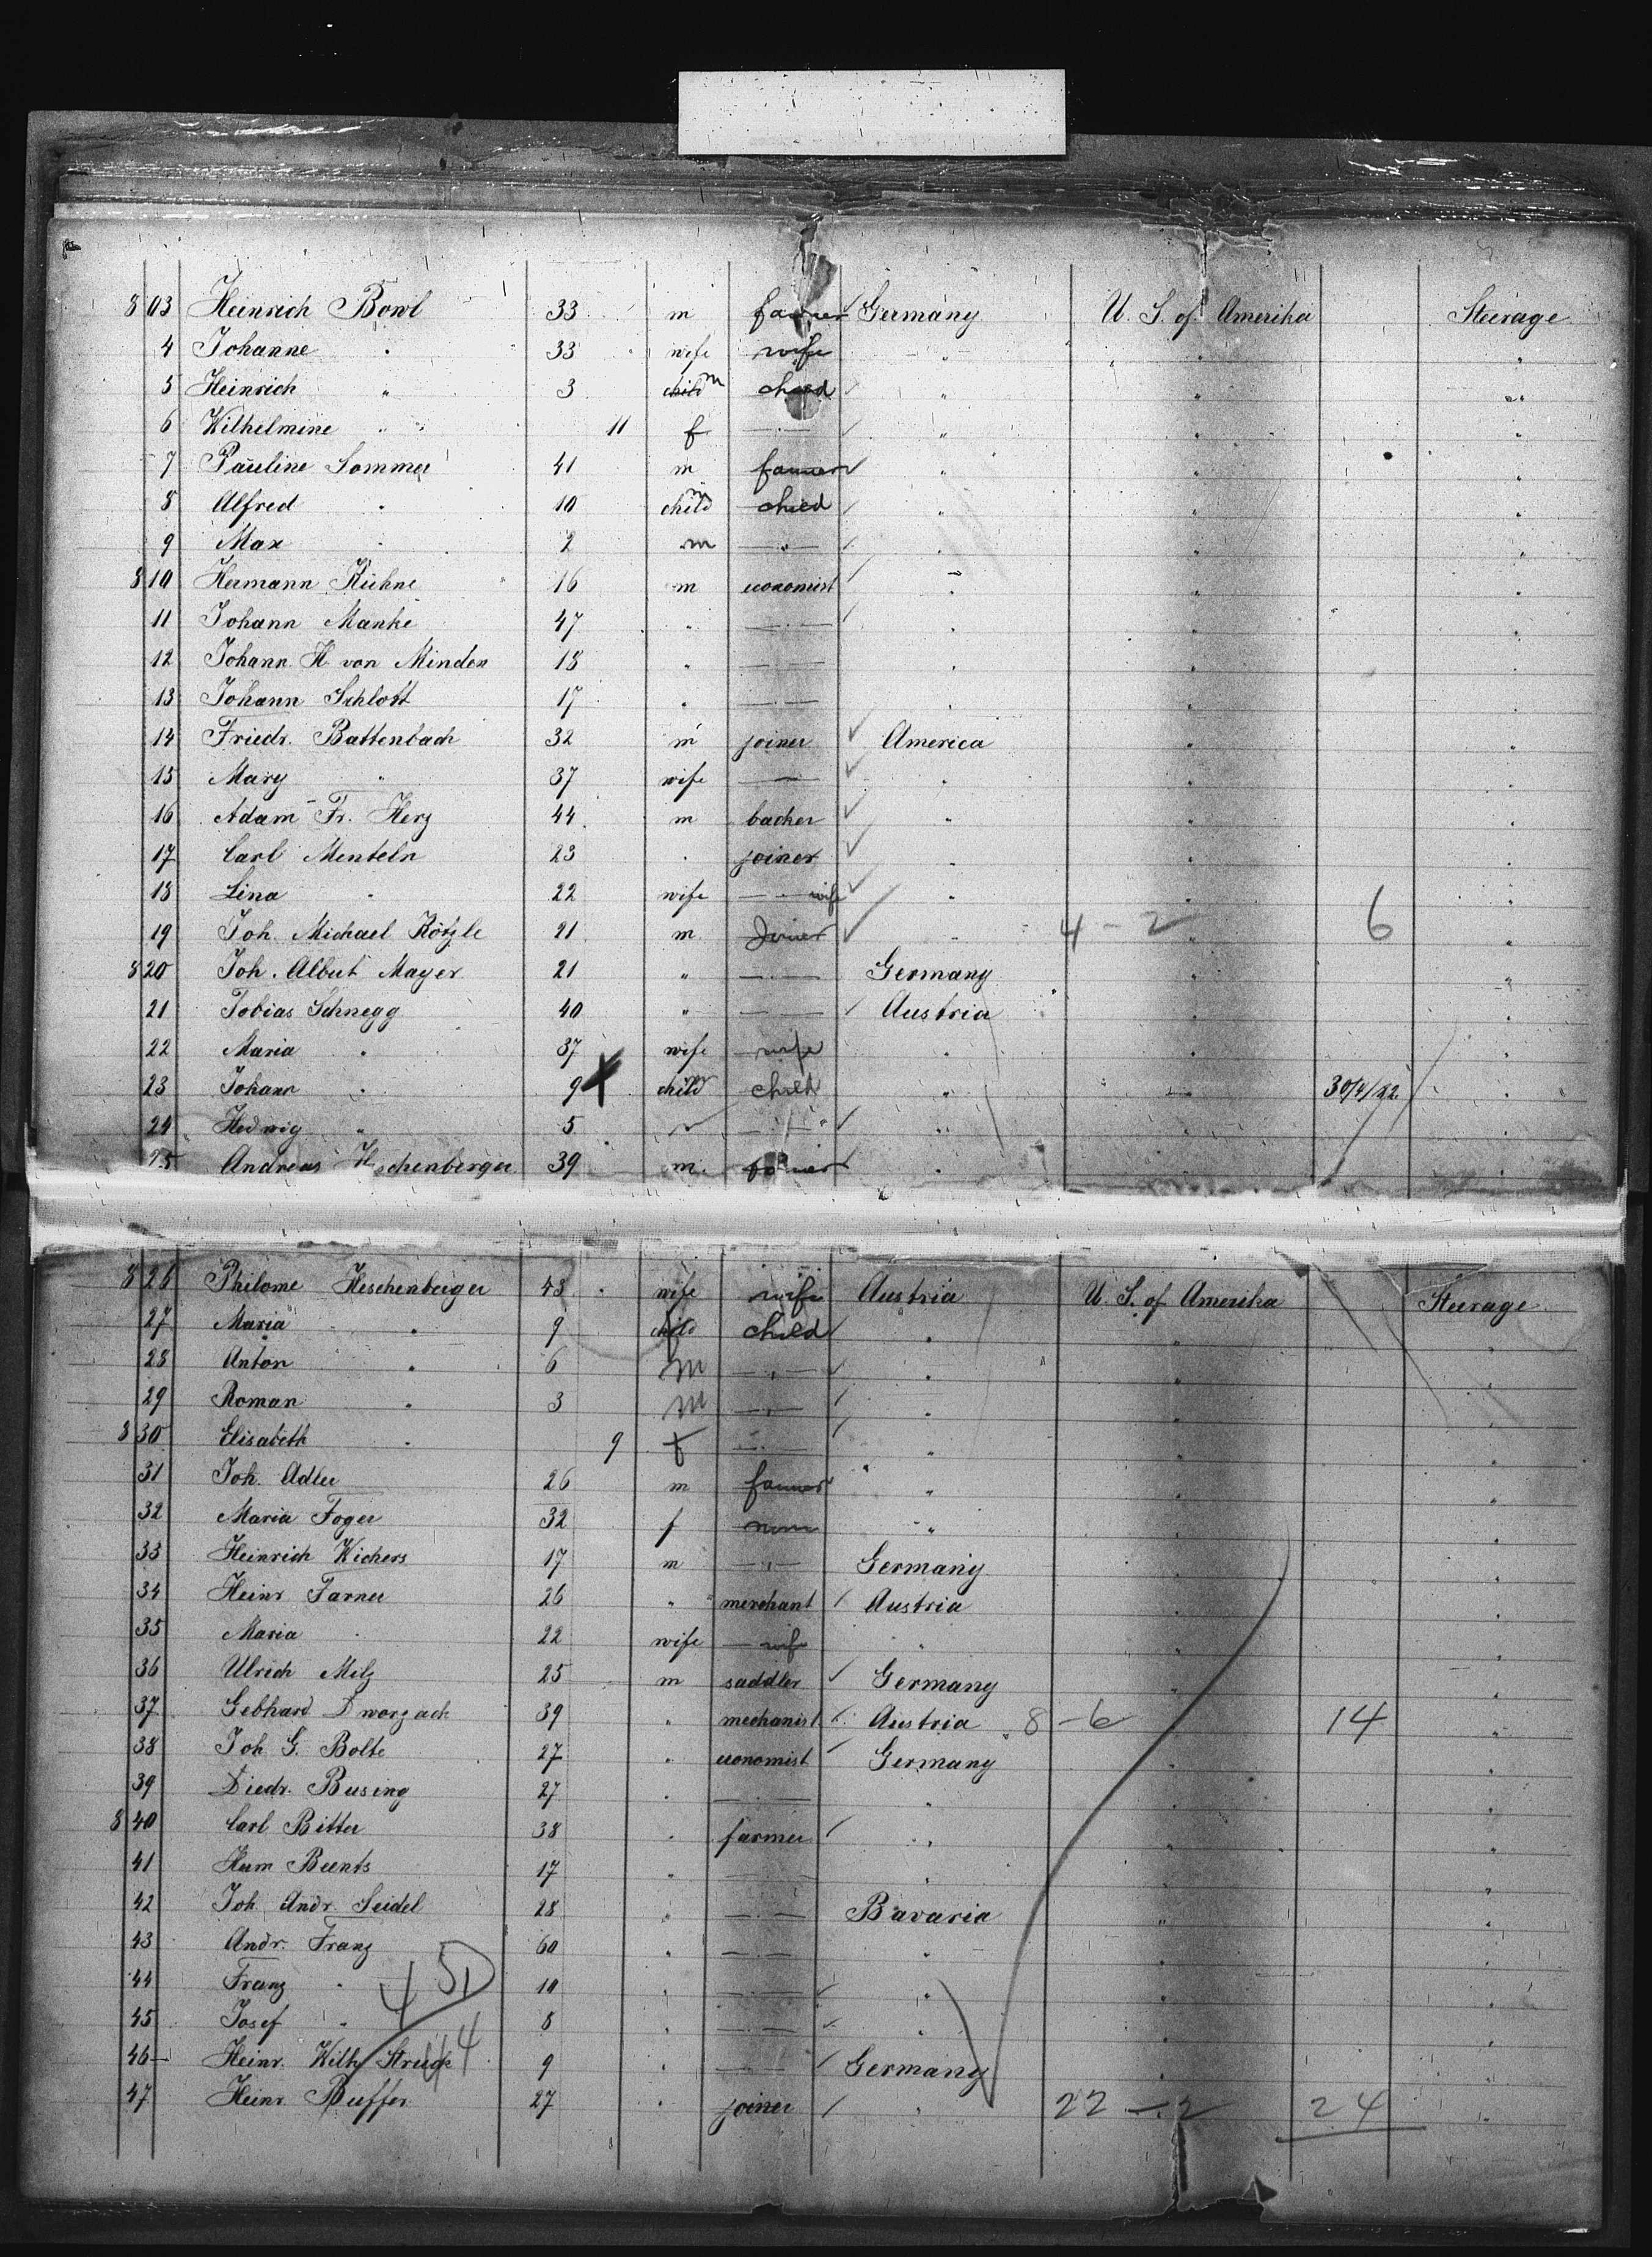 8 03 Heinrich Bowl 33 m farmer ✓ Germany U. S. of Amerika Steerage
4 Johanne " 33 wife wife " " "
5 Heinrich " 3 child m child ✓ " " "
6 Wilhelmine " 11 f —"— ✓ " " "
7 Pauline Sommer 41 m farmer ✓ " " "
8 Alfred " 10 child m child ✓ " " "
9 Max " 2 m —"— ✓ " " "
8 10 Hermann Kühne 16 m economist ✓ " " "
11 Johann Manke 47 " —"— ✓ " " "
12 Johann H von Minden 18 " —"— " " "
13 Johann Schlott 17 " —"— " " "
14 Friedr. Battenbach 32 m joiner ✓ America " "
15 Mary " 37 wife —"— ✓ " " "
16 Adam Fr. Herz 44 m backer ✓ " " "
17 Carl Menteln 23 " joiner ✓ " " "
18 Lina " 22 wife —"— wife ✓ " " "
19 Joh. Michael Kötzle 21 m Joiner ✓ " 4 - 2 " 6 "
8 20 Joh. Albert Mayer 21 " —"— Germany " "
21 Tobias Schnegg 40 " —"— ✓ Austria " "
22 Maria " 37 wife wife " " "
23 Johann " 9 X child m child " " 30/4/22 "
24 Hedwig " 5 —"— ✓ " " "
25 Andreas 39 m. farmer " " "
8 26 Philome Heschenberger 43 wife wife Austria U. S. of Amerika Steerage
27 Maria " 9 child f child ✓ " " "
28 Anton " 6 m —"— ✓ " " "
29 Roman " 3 m —"— ✓ " " "
8 30 Elisabeth " 9 f —"— ✓ " " "
31 Joh. Adler 26 m farmer " " "
32 Maria Foger 32 f none " " "
33 Heinrich Wichers 17 m —"— Germany " "
34 Heinr Farner 26 " merchant ✓ Austria " "
35 Maria " 22 wife — wife " " "
36 Ulrich Milz 25 m saddler ✓ Germany " "
37 Gebhard Dworzack 39 " mechanist ✓ Austria 8 - 6 " 14 "
38 Joh G. Bolte 27 " economist ✓ Germany " "
39 Diedr. Busing 27 " —"— " " "
8 40 Carl Bitter 38 " farmer ✓ " " "
41 Herm Beents 17 " —"— " " "
42 Joh. Andr. Seidel 28 " —"— Bavaria " "
43 Andr. Franz 60 " —"— " " "
44 Franz " 10 " —"— ✓ " " "
45 Josef " 8 " —"— ✓ " " "
46 Heinr. Wilh. Struck 9 " —"— ✓ Germany " "
47 Heinr Buffer 27 " joiner ✓ " 22 - 2 24 "